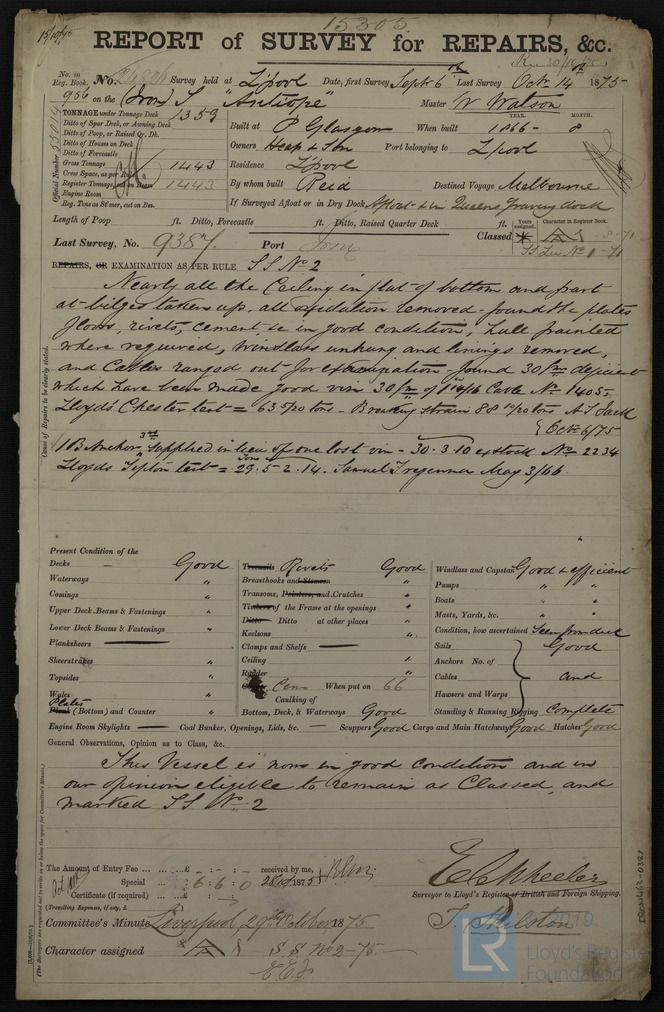 15305
15/10/75
REPORT of SURVEY for REPAIRS, &c.
No. in Reg. Book.
No. Survey held at L'pool Date, first Survey Septr 6th Last Survey Octr 14th 1875
956 on the (Iron) S "Antiope" Master W Watson
TONNAGE under Tonnage Deck 1359
Ditto of Spar Deck, or Awning Deck
Ditto of Poop, or Raised Qr. Dk.
Ditto of Houses on Deck
Ditto of Forecastle
Gross Tonnage 1443
Crew Space, as per Rule
Register Tonnage, as on Beam 1443
Engine Room
Reg. Tons as St'mer, cut on Bm.
Official Number
YEAR. MONTH.
Built at P Glasgow When built 1866 - 8
Owners Heap & Son Port belonging to L'pool
Residence L'pool
By whom built Reid Destined Voyage Melbourne
If Surveyed Afloat or in Dry Dock Afloat & in Queens Graving dock
Length of Poop ft. Ditto, Forecastle ft. Ditto, Raised Quarter Deck ft.
Last Survey, No. 9387 Port
Classed
Years assigned. Character in Register Book.
REPAIRS, OR EXAMINATION AS PER RULE SS No 2
Nearly all the Ceiling in flat of bottom and part
at bilges taken up, all oxidation removed - found the plates
floors, rivets, cement, &c in good condition, hull painted
where required, windlass unhung and linings removed,
and Cables ranged out for examination - found 30 fms deficient
which have been made good viz 30 fms of 1 14/16 Cable No 1405,
Lloyd's Chester test = 63 5/20 tons - Breaking strain 88 10/20 tons
{ Octr 6/75
1 B Anchor 3rd supplied in lieu of one lost viz - 30.3.10 ex stock No 2234
Lloyds Tipton test = 29.5.2.14. Samuel Tregenna May 3/66
Cause of Repairs to be clearly stated.
Present Condition of the
Decks - Good
Waterways "
Comings "
Upper Deck Beams & Fastenings "
Lower Deck Beams & Fastenings "
Planksheers
Sheerstrakes "
Topsides "
Wales "
Plates
Plank (Bottom) and Counter "
Treenails Rivets Good
Breasthooks and Stemson "
Transoms, Pointers, and Crutches "
Timbers of the Frame at the openings "
Ditto Ditto at other places "
Keelsons "
Clamps and Shelfs
Ceiling "
Rudder "
When put on 66
Caulking of
Bottom, Deck, & Waterways Good
Windlass and Capstan Good & efficient
Pumps " "
Boats " "
Masts, Yards, &c. " "
Condition, how ascertained Seen from deck
Sails Good
Anchors No. of
Cables and
Hawsers and Warps
Standing & Running Rigging Complete
Engine Room Skylights Coal Bunker, Openings, Lids, &c. Scuppers Good Cargo and Main Hatchways Good Hatches Good
General Observations, Opinion as to Class, &c.
This Vessel is now in good condition and in
our opinion eligible to remain as Classed, and
marked SS No 2
The Amount of Entry Fee £ : - : - received by me,
Special 6 : 6 : 0 1875
Certificate (if required)
(Travelling Expenses, if any, £
Surveyor to Lloyd's Register of British and Foreign Shipping.
Committee's Minute Liverpool, 29th October 1875
Character assigned A S S No 2-75.
© 2019
LR Lloyd's Register Foundation